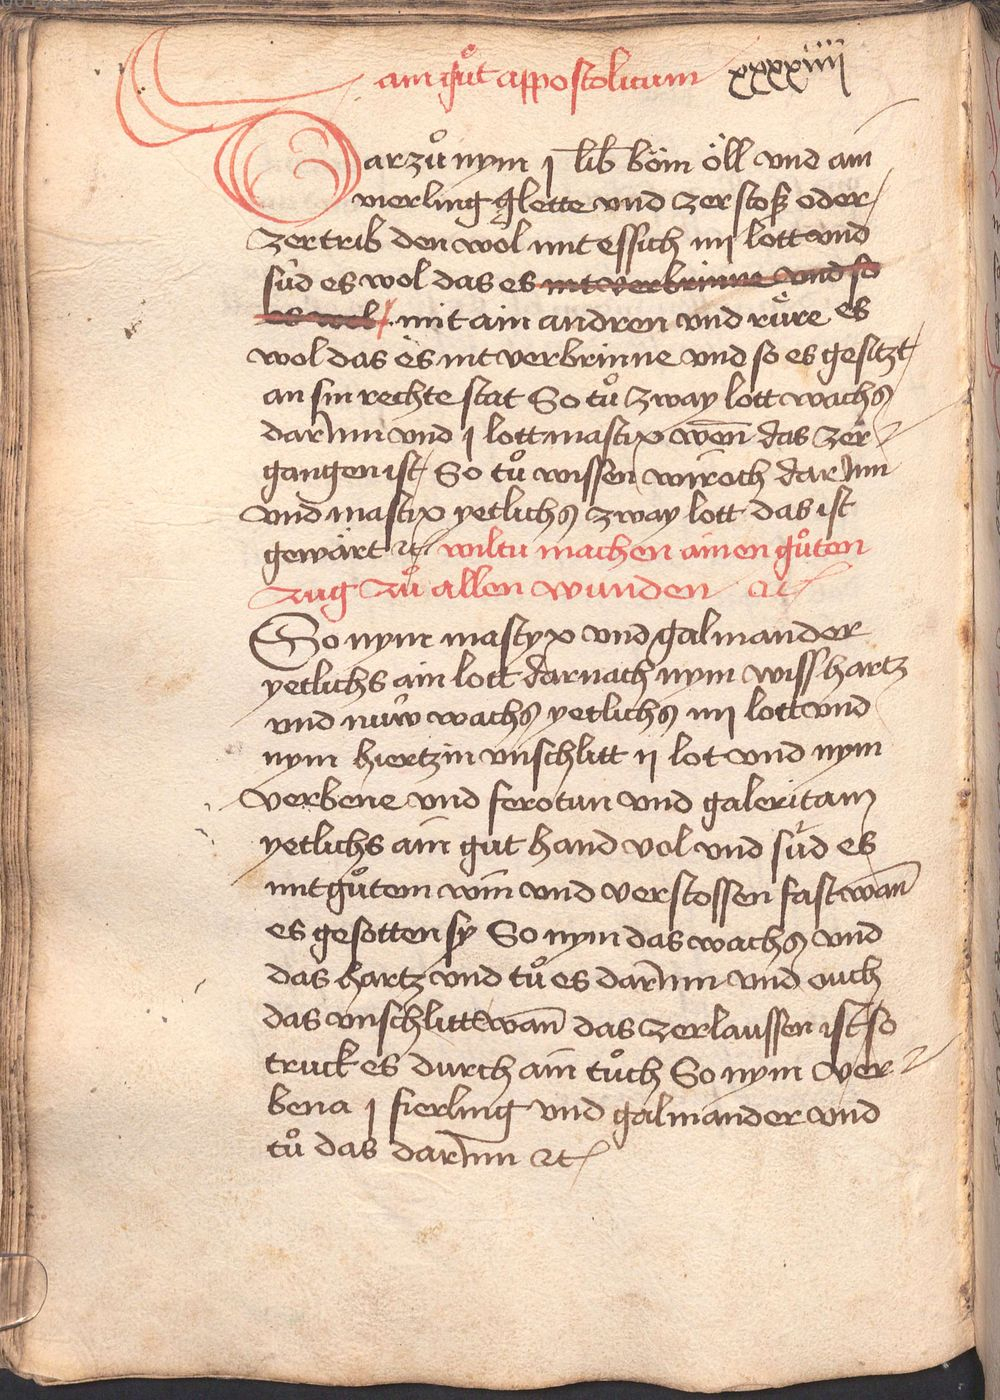 ain gůt appostolicum xxxxiiii
Darzů nym j lib böm öll vnd ain
vierling glette vnd zerstoß oder
zertrib den wol mit essich iiij lott vnd
süd es wol das es nit verbrinne vnd so
es wol / mit ain andren vnd rüre es
wol das es nit verbrinne vnd so es gesitzt
an sin rechte stat So tů zway lott wachs
darinn vnd j lott mastix wen̄ das zer
gangen ist So tů wissen wiroch darinn
vnd mastix yetlichs zway lott das ist
gewärt ꝛc wiltu machen ainen gůten
zug zů allen wunden ꝛc
So nym mastyx vnd galmander
yetlichs ain lott darnach nym wiss hartz
vnd nüw wachs yetlichs iiij lott vnd
nym hiertzin vnschlitt ij lot vnd nym
verbene vnd ferotun vnd galeritam
yetlichs ain gut hand vol vnd süd es
mit gůtem win vnd verstossen fast wan̄
es gesotten sy So nym das wachs vnd
das hartz vnd tů es darinn vnd ouch
das vnschlitt wan̄ das zerlaussen ist so
truck es durch ain tůch So nym ver
bena j fierling vnd galmander vnd
tů das darinn ꝛc